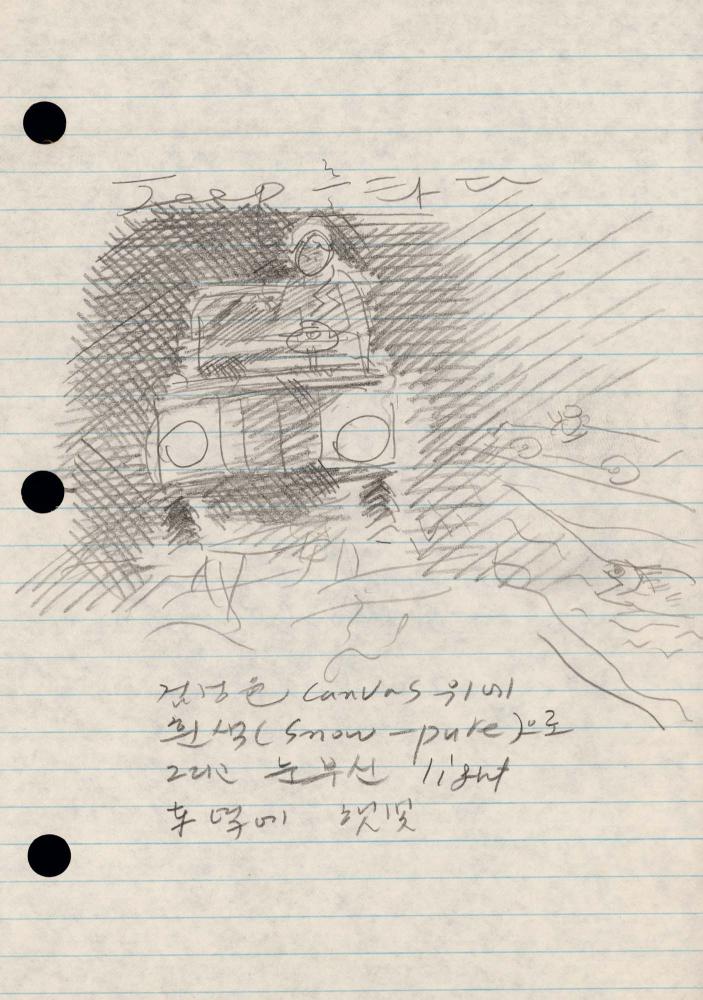 Jeep 를 타다
검정색 canvas 위에
흰색(snow-pure)으로
그리고 눈부신 light
햇빛